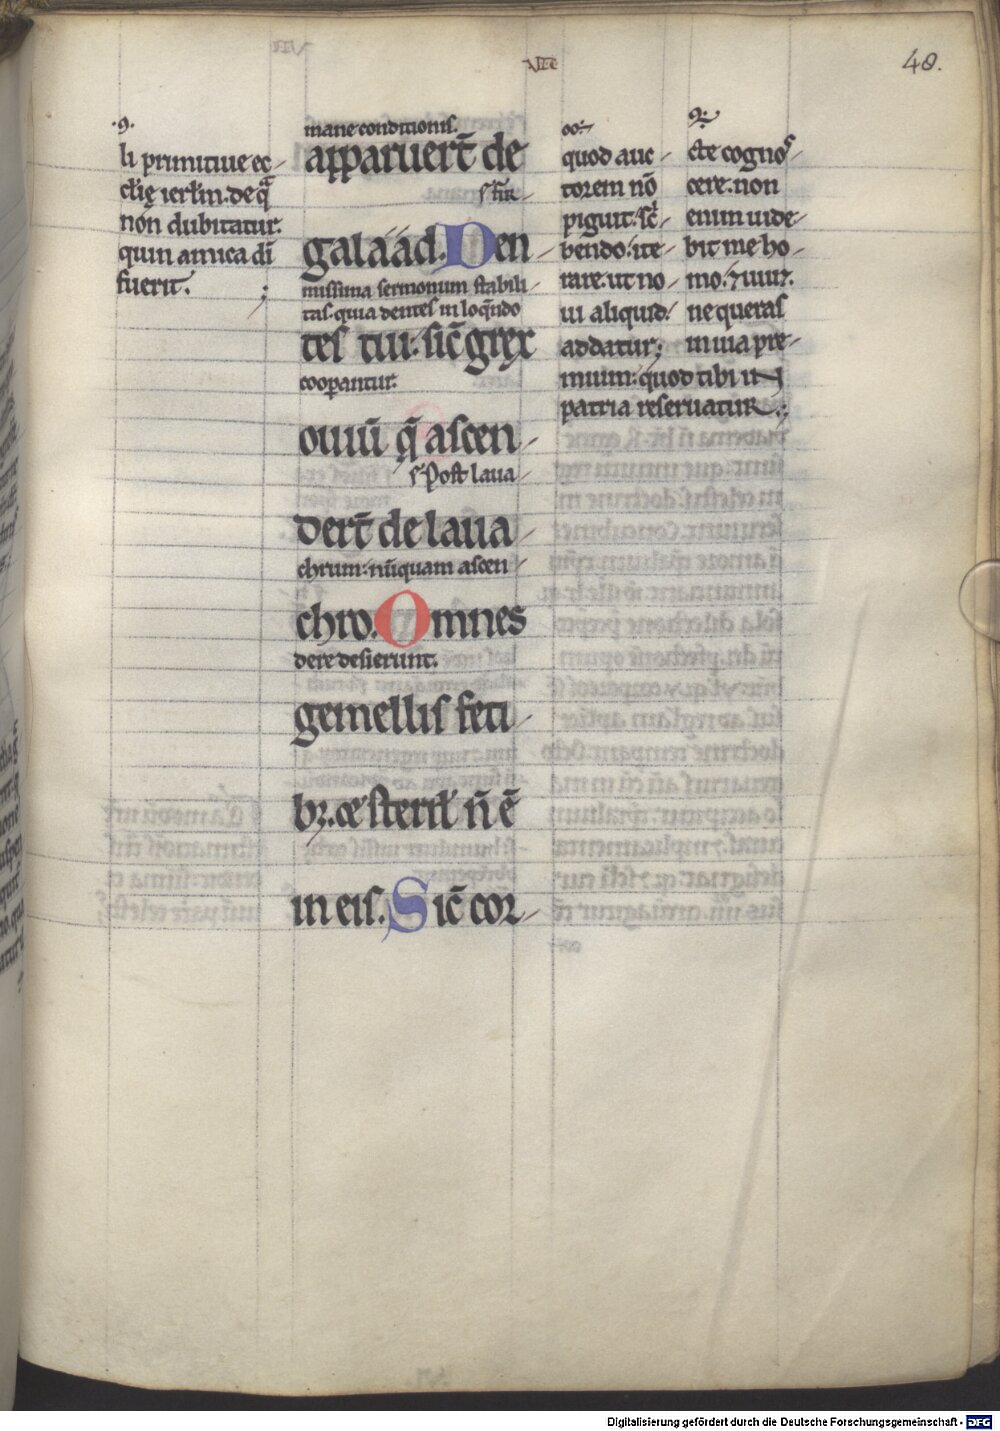 VII
48.
.9.
li primitiue ec-
cl̄ię ierl̄m. de q̄
non dubitatur.
quin amica dī
fuerit. ;
mane conditionis.
apparuert̄ de
galaad. Den
missima sermonum stabili-
tas. quia dentes in loq̄ndo
tes tui: sic̄ grex
cooperantur.
ouiū q̄ ascen-
s̄. Post laua
dert̄ de laua-
chrum: nūquam ascen-
chro. Omnes
dere desierunt.
gemellis feti-
bꝫ. & steril̄ n̄ ē
in eis. Sic̄ cor-
quod auc-
torem nō
piguit. sc̄
bendo: ite-
rare. ut no-
ui aliquid.
addatur;
mium: quod tibi iN
patria reseruatur.;
&te cognos-
cere. non
enim uide-
bit me ho-
mo. ⁊ uiu⁊.
ne queras
in uia pre-
Digitalisierung gefördert durch die Deutsche Forschungsgemeinschaft - DFG